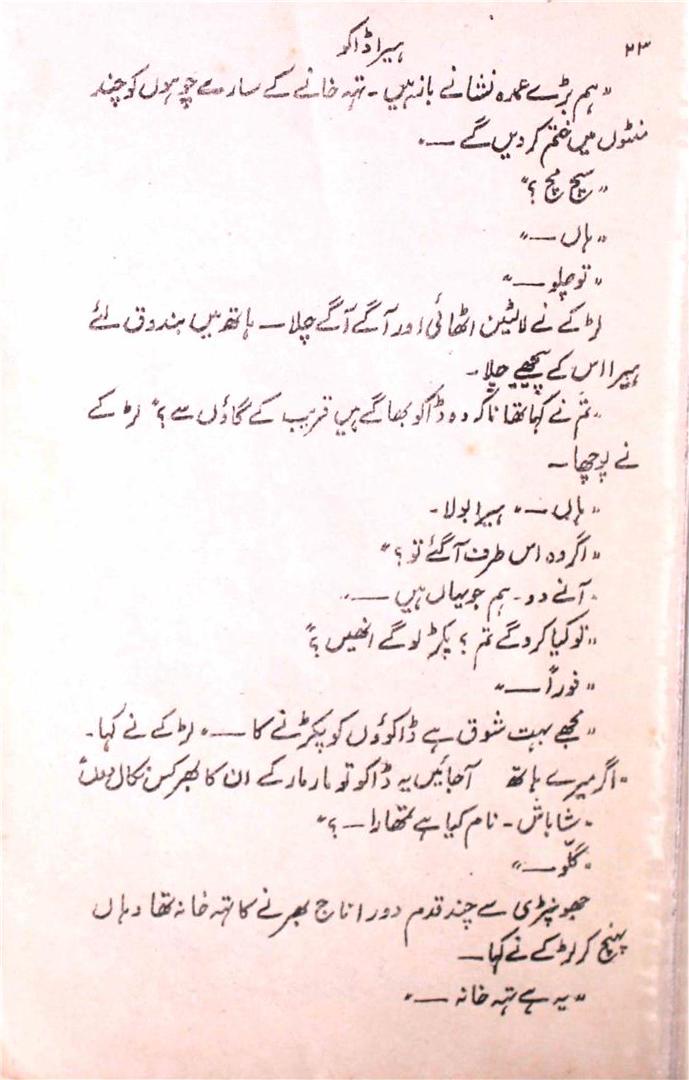 ۲۳
ہیرا ڈاکو
"ہم بڑے عمدہ نشانے باز ہیں۔ تہہ خانے کے سارے چوہوں کو چند
منٹوں میں ختم کر دیں گے —"
"سچ مچ؟"
"ہاں —"
"تو چلو —"
لڑکے نے لالٹین اٹھائی اور آگے آگے چلا — ہاتھ میں بندوق لئے
ہیرا اس کے پیچھے چلا۔
"تم نے کہا تھا نا کہ وہ ڈاکو بھاگے ہیں قریب کے گاؤں سے؟" لڑکے
نے پوچھا —
"ہاں —" ہیرا بولا۔
"اگر وہ اس طرف آ گئے تو؟"
"آنے دو۔ ہم جو یہاں ہیں —"
"تو کیا کرو گے تم؟ پکڑ لو گے انھیں؟"
"فوراً —"
"مجھے بہت شوق ہے ڈاکوؤں کو پکڑنے کا —" لڑکے نے کہا۔
"اگر میرے ہاتھ آ جائیں یہ ڈاکو تو مار مار کے ان کا بھرکس نکال دوں"
"شاباش۔ نام کیا ہے تمھارا —؟"
"گلّو —"
جھونپڑی سے چند قدم دور اناج بھرنے کا تہہ خانہ تھا وہاں
پہنچ کر لڑکے نے کہا —
"یہ ہے تہہ خانہ —"